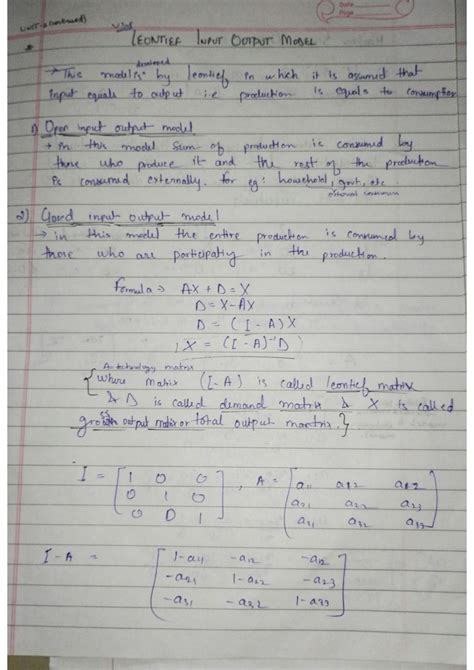 Date
Page
Unit-2 (continued)
LEONTIEF INPUT OUTPUT MODEL
developed
→ This model is by leontief in which it is assumed that
input equals to output i.e production is equals to consumption
1) Open input output model
→ in this model sum of production is consumed by
those who produce it and the rest of the production
is consumed externally. for eg: household, govt, etc
external consumer
2) Closed input output model
→ in this model the entire production is consumed by
those who are participatiy in the production.
Formula ⇒ AX + D = X
D = X - AX
D = (I - A) X
X = (I - A)⁻¹ D
A = technology matrix
where matrix (I - A) is called leontief matrix
& D is called demand matrix & X is called
gross output matrix or total output martrix.
I = [ 1 0 0 , A = [ a11 a12 a12
0 1 0 a21 a22 a23
0 0 1 ] a31 a32 a33 ]
I - A = [ 1-a11 -a12 -a12
-a21 1-a22 -a23
-a31 -a32 1-a33 ]